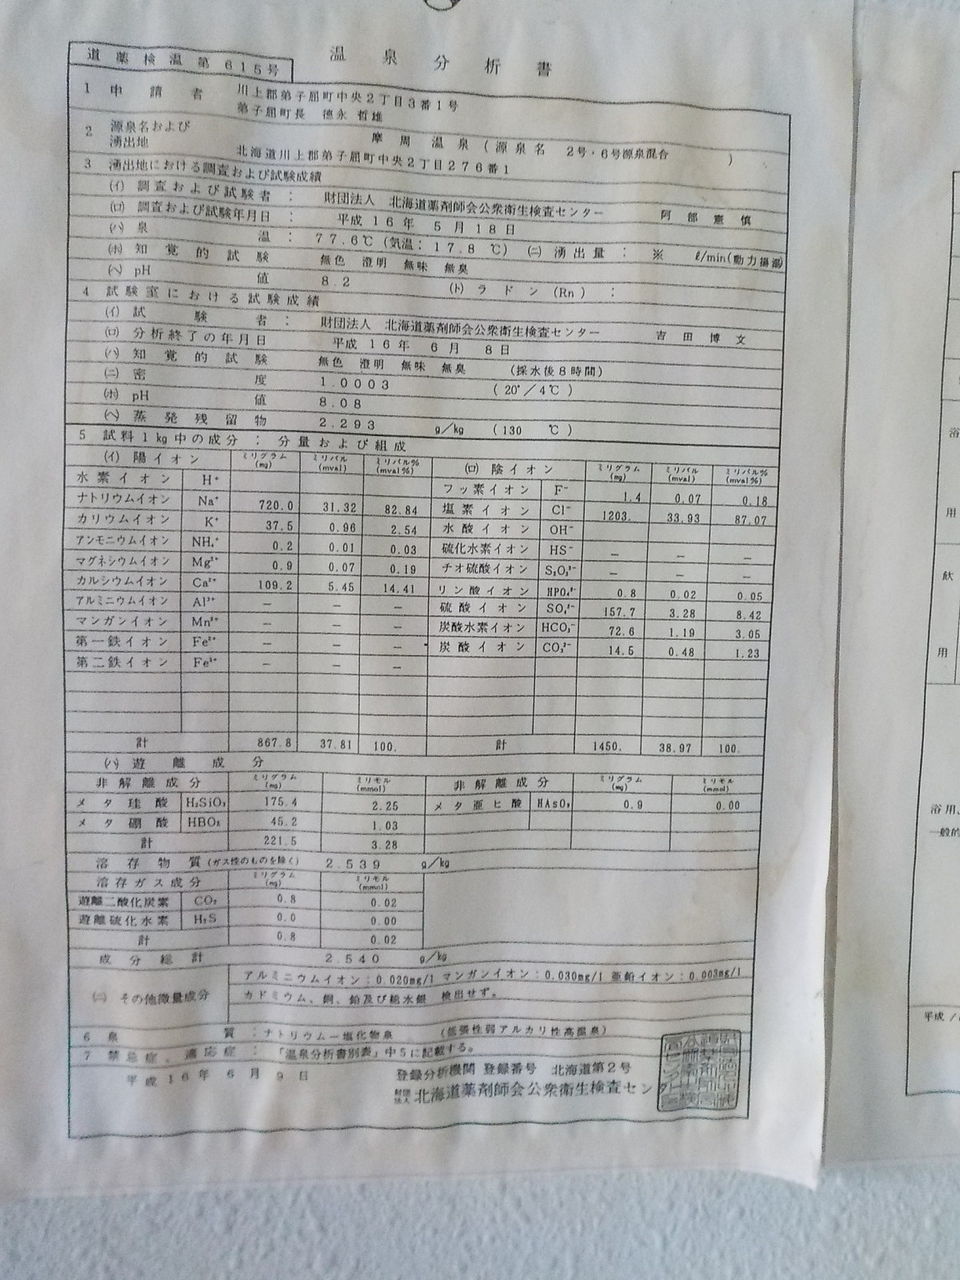 温泉分析書
道薬検温第615号
1 申請者 川上郡弟子屈町中央2丁目3番1号
弟子屈町長 徳永 哲雄
2 源泉名および湧出地 摩周温泉(源泉名 2号・6号源泉混合 )
北海道川上郡弟子屈町中央2丁目276番1
3 湧出地における調査および試験成績
(イ) 調査および試験者: 財団法人 北海道薬剤師会公衆衛生検査センター 阿部憲慎
(ロ) 調査および試験年月日: 平成16年 5月18日
(ハ) 泉温: 77.6℃(気温: 17.8 ℃) (ニ) 湧出量: ※ ℓ/min(動力揚湯)
(ホ) 知覚的試験 無色 澄明 無味 無臭
(ヘ) pH値 8.2 (ト) ラドン(Rn):
4 試験室における試験成績
(イ) 試験者: 財団法人 北海道薬剤師会公衆衛生検査センター 吉田博文
(ロ) 分析終了の年月日 平成16年 6月 8日
(ハ) 知覚的試験 無色 澄明 無味 無臭 (採水後8時間)
(ニ) 密度 1.0003 (20°/4℃)
(ホ) pH値 8.08
(ヘ) 蒸発残留物 2.293 g/kg (130 ℃)
5 試料1kg中の成分; 分量および組成
(イ) 陽イオン ミリグラム(mg) ミリバル(mval) ミリバル%(mval%) (ロ) 陰イオン ミリグラム(mg) ミリバル(mval) ミリバル%(mval%)
水素イオン H⁺ フッ素イオン F⁻ 1.4 0.07 0.18
ナトリウムイオン Na⁺ 720.0 31.32 82.84 塩素イオン Cl⁻ 1203. 33.93 87.07
カリウムイオン K⁺ 37.5 0.96 2.54 水酸イオン OH⁻
アンモニウムイオン NH₄⁺ 0.2 0.01 0.03 硫化水素イオン HS⁻ − − −
マグネシウムイオン Mg²⁺ 0.9 0.07 0.19 チオ硫酸イオン S₂O₃²⁻ − − −
カルシウムイオン Ca²⁺ 109.2 5.45 14.41 リン酸イオン HPO₄²⁻ 0.8 0.02 0.05
アルミニウムイオン Al³⁺ − − − 硫酸イオン SO₄²⁻ 157.7 3.28 8.42
マンガンイオン Mn²⁺ − − − 炭酸水素イオン HCO₃⁻ 72.6 1.19 3.05
第一鉄イオン Fe²⁺ − − − 炭酸イオン CO₃²⁻ 14.5 0.48 1.23
第二鉄イオン Fe³⁺ − − −
計 867.8 37.81 100. 計 1450. 38.97 100.
(ハ) 遊離成分
非解離成分 ミリグラム(mg) ミリモル(mmol) 非解離成分 ミリグラム(mg) ミリモル(mmol)
メタ珪酸 H₂SiO₃ 175.4 2.25 メタ亜ヒ酸 HAsO₂ 0.9 0.00
メタ硼酸 HBO₂ 45.2 1.03
計 221.5 3.28
溶存物質(ガス性のものを除く) 2.539 g/kg
溶存ガス成分 ミリグラム(mg) ミリモル(mmol)
遊離二酸化炭素 CO₂ 0.8 0.02
遊離硫化水素 H₂S 0.0 0.00
計 0.8 0.02
成分総計 2.540 g/kg
(ニ) その他微量成分 アルミニウムイオン:0.020mg/l マンガンイオン:0.030mg/l 亜鉛イオン:0.003mg/l
カドミウム、銅、鉛及び総水銀 検出せず。
6 泉質:ナトリウム−塩化物泉 (低張性弱アルカリ性高温泉)
7 禁忌症、適応症:「温泉分析書別表」中5に記載する。
平成16年6月9日 登録分析機関 登録番号 北海道第2号
財団法人 北海道薬剤師会公衆衛生検査センタ
浴
用
飲
用
浴用、
一般的
平成